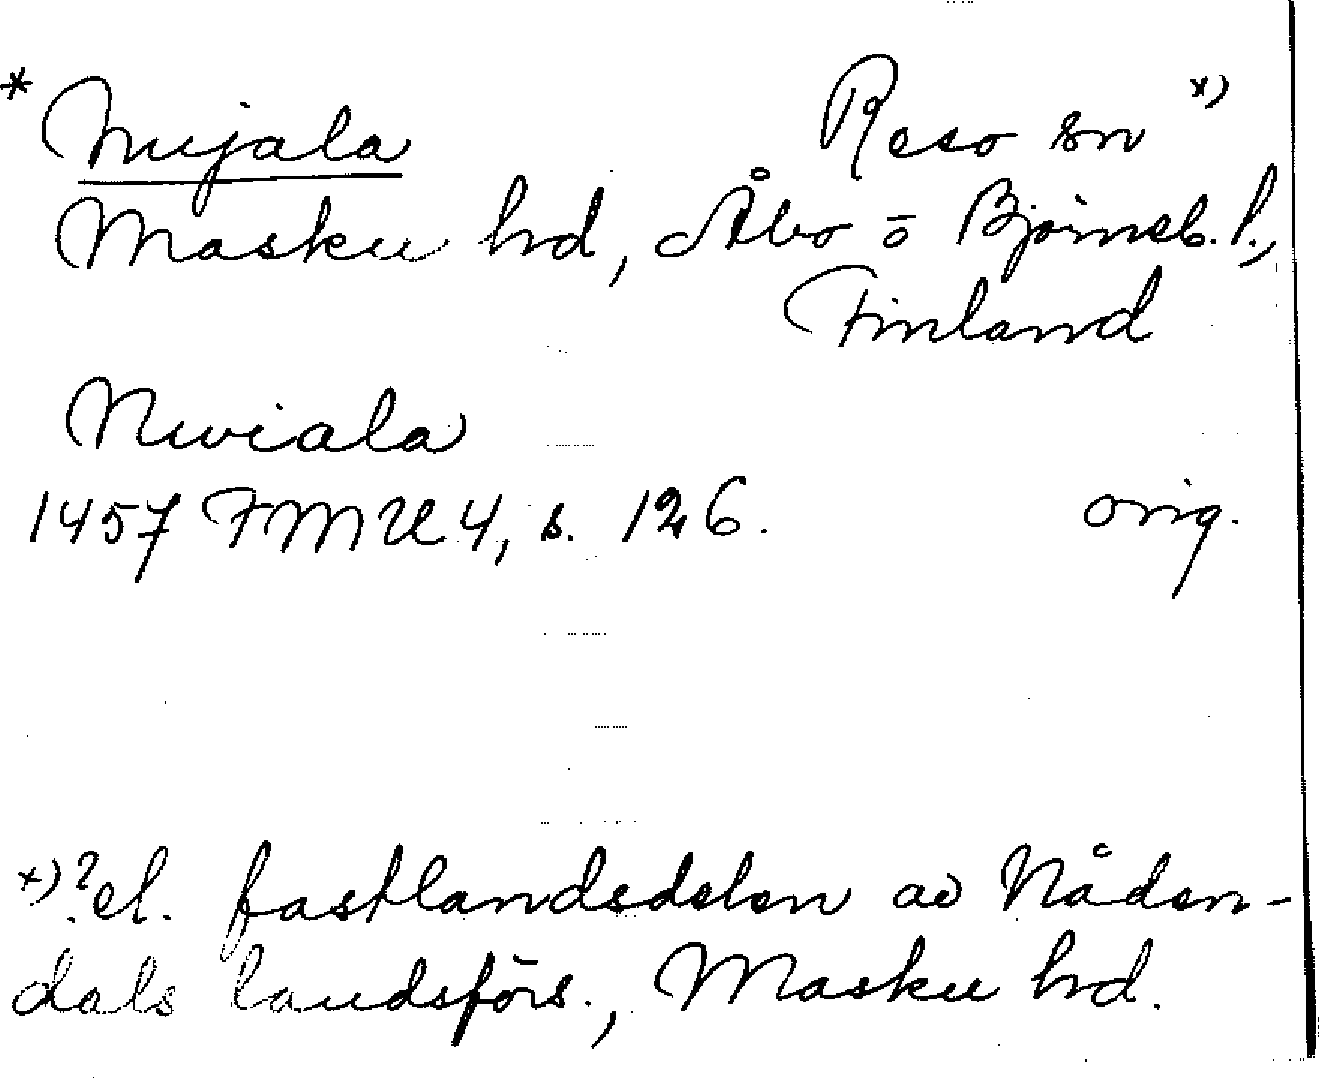 * Nujala Reso sn x)
Masku hd, Åbo o Björneb. l.,
Finland
Nwiala
1457 FMU 4, s. 126. orig.
x) ? el. fastlandsdelen av Nåden-
dals landsförs., Masku hd.